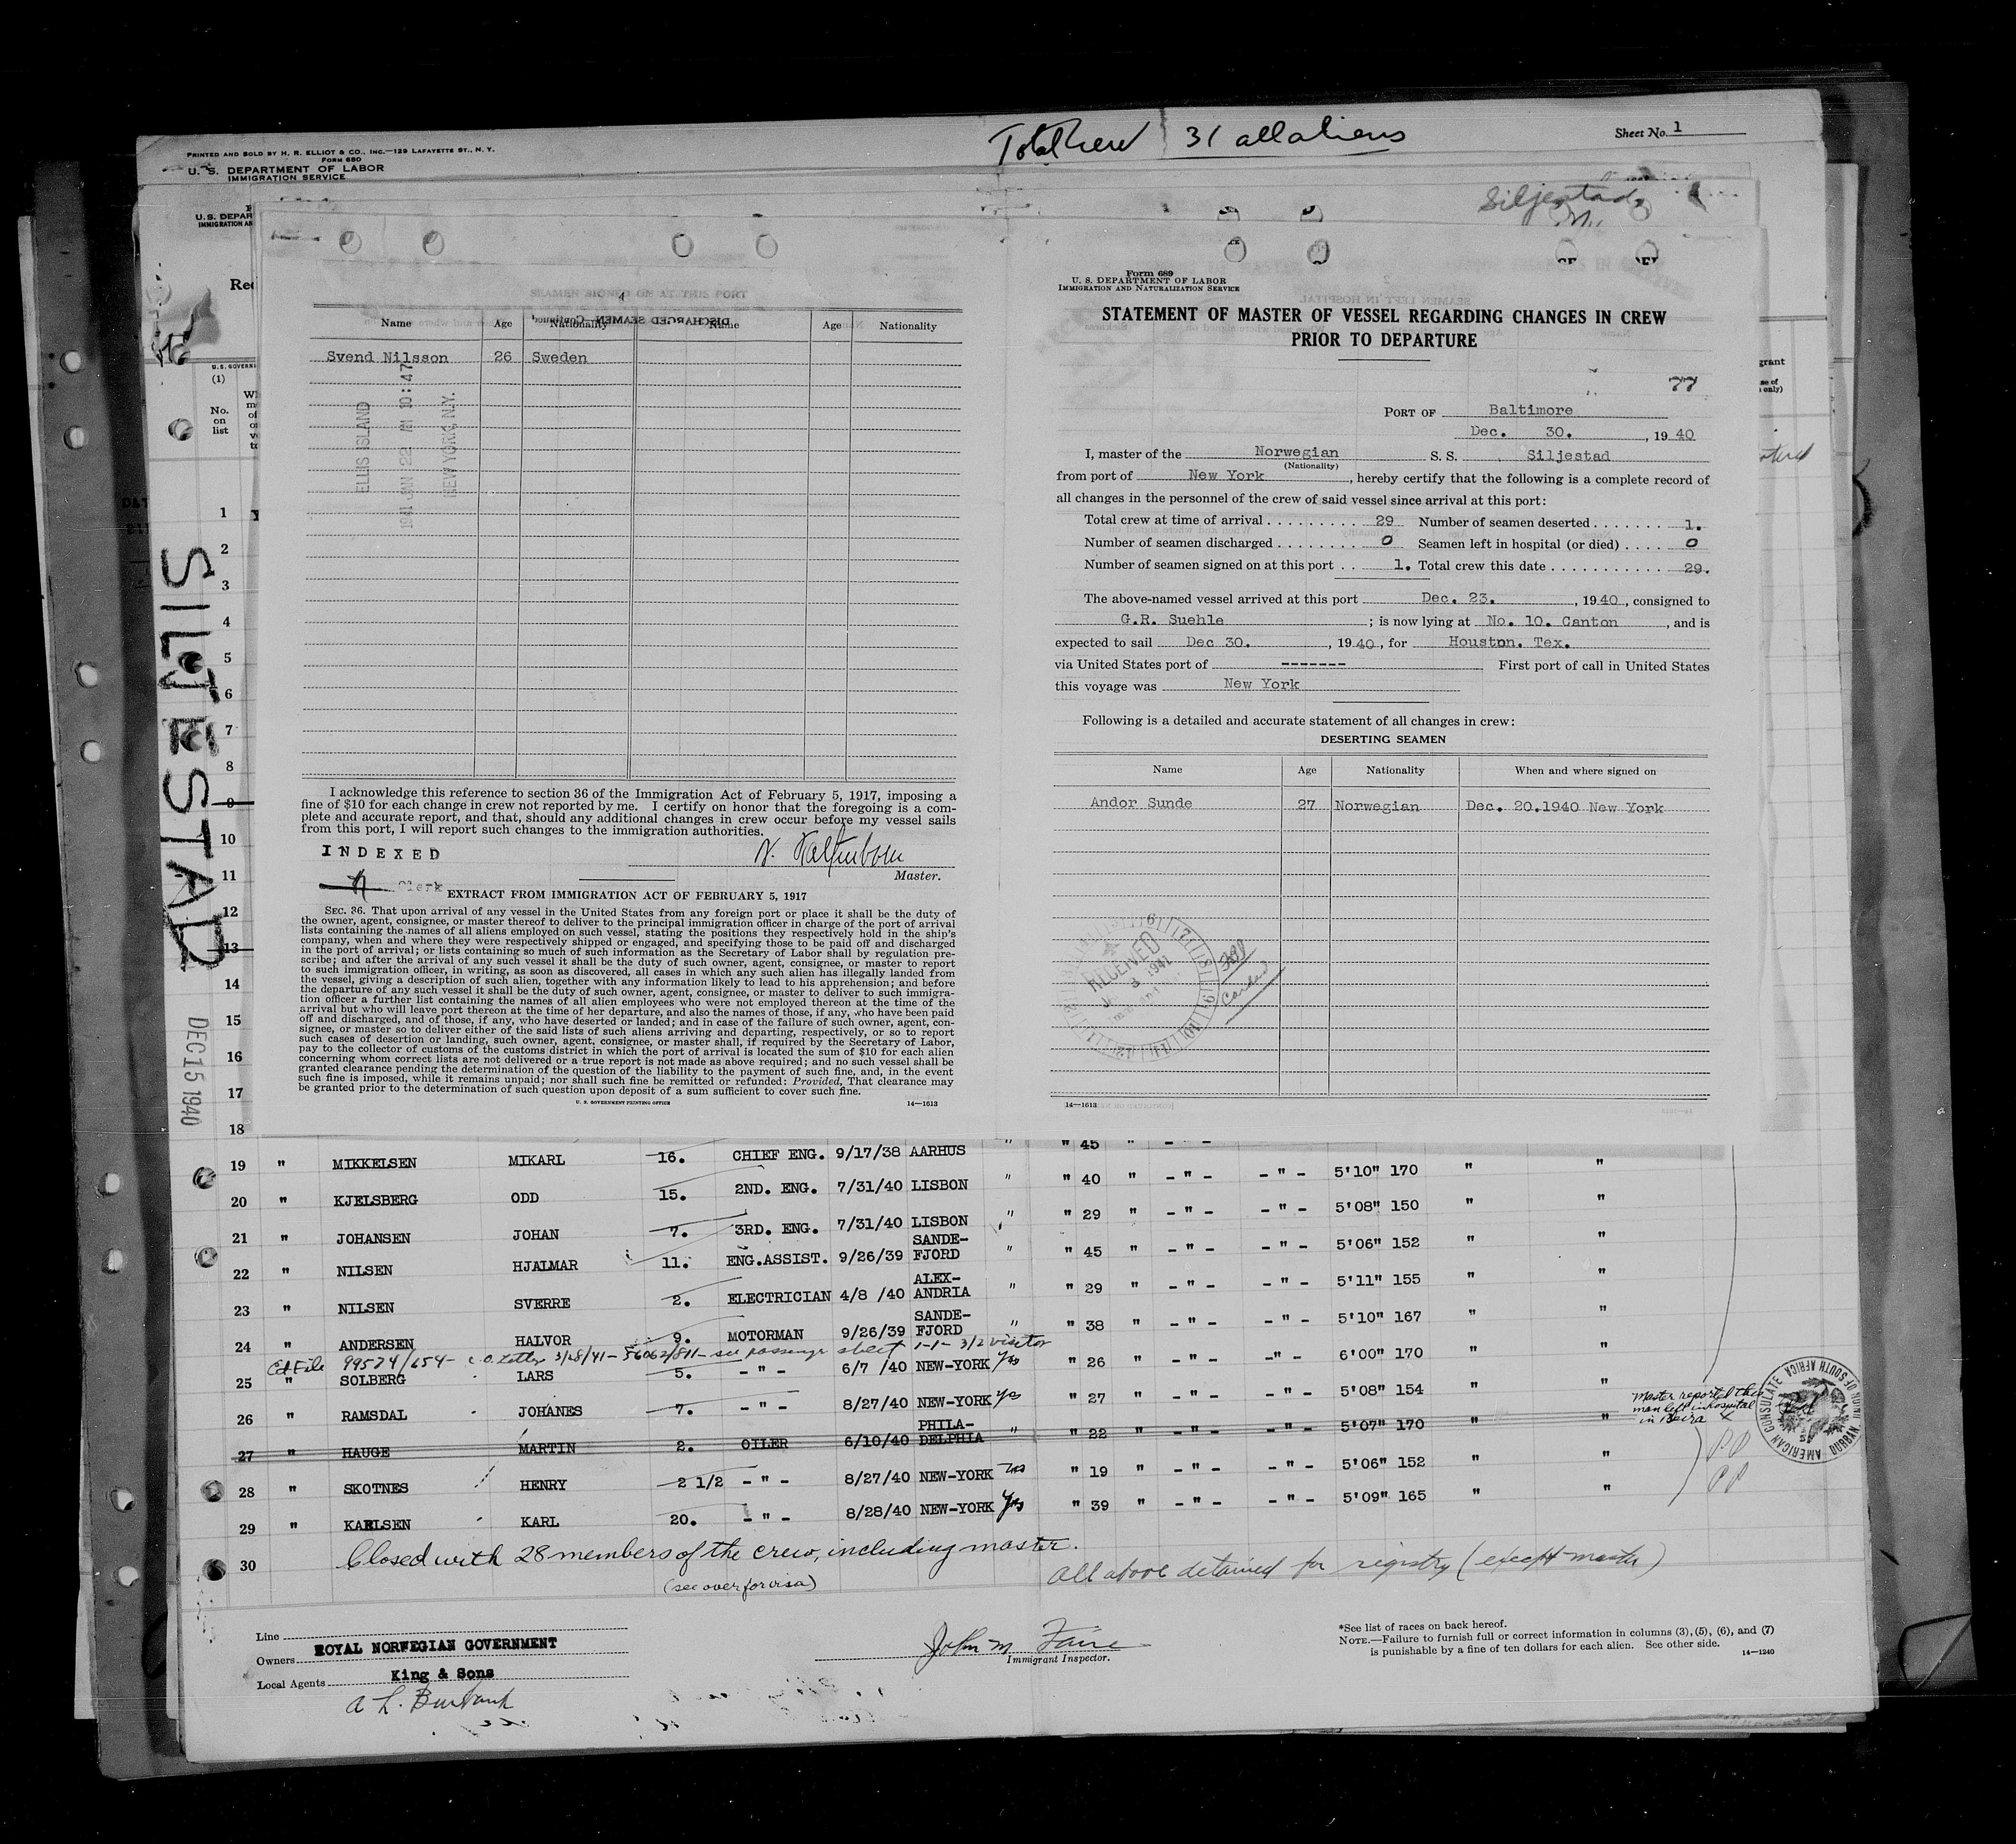 Total crew 31 all aliens
Sheet No. 1
PRINTED AND SOLD BY H. R. ELLIOT & CO., INC.—129 LAFAYETTE ST., N. Y.
FORM 680
U. S. DEPARTMENT OF LABOR
IMMIGRATION SERVICE
Siljestad
SILJESTAD
DEC 15 1940
SEAMEN SIGNED ON AT THIS PORT
Name Age Nationality Name Age Nationality
Svend Nilsson 26 Sweden
ELLIS ISLAND
1941 JAN 22 AM 10:47
NEW YORK, N.Y.
I acknowledge this reference to section 36 of the Immigration Act of February 5, 1917, imposing a
fine of $10 for each change in crew not reported by me. I certify on honor that the foregoing is a com-
plete and accurate report, and that, should any additional changes in crew occur before my vessel sails
from this port, I will report such changes to the immigration authorities.
INDEXED
Master.
Clerk
EXTRACT FROM IMMIGRATION ACT OF FEBRUARY 5, 1917
SEC. 36. That upon arrival of any vessel in the United States from any foreign port or place it shall be the duty of
the owner, agent, consignee, or master thereof to deliver to the principal immigration officer in charge of the port of arrival
lists containing the names of all aliens employed on such vessel, stating the positions they respectively hold in the ship's
company, when and where they were respectively shipped or engaged, and specifying those to be paid off and discharged
in the port of arrival; or lists containing so much of such information as the Secretary of Labor shall by regulation pre-
scribe; and after the arrival of any such vessel it shall be the duty of such owner, agent, consignee, or master to report
to such immigration officer, in writing, as soon as discovered, all cases in which any such alien has illegally landed from
the vessel, giving a description of such alien, together with any information likely to lead to his apprehension; and before
the departure of any such vessel it shall be the duty of such owner, agent, consignee, or master to deliver to such immigra-
tion officer a further list containing the names of all alien employees who were not employed thereon at the time of the
arrival but who will leave port thereon at the time of her departure, and also the names of those, if any, who have been paid
off and discharged, and of those, if any, who have deserted or landed; and in case of the failure of such owner, agent, con-
signee, or master so to deliver either of the said lists of such aliens arriving and departing, respectively, or so to report
such cases of desertion or landing, such owner, agent, consignee, or master shall, if required by the Secretary of Labor,
pay to the collector of customs of the customs district in which the port of arrival is located the sum of $10 for each alien
concerning whom correct lists are not delivered or a true report is not made as above required; and no such vessel shall be
granted clearance pending the determination of the question of the liability to the payment of such fine, and, in the event
such fine is imposed, while it remains unpaid; nor shall such fine be remitted or refunded: Provided, That clearance may
be granted prior to the determination of such question upon deposit of a sum sufficient to cover such fine.
U. S. GOVERNMENT PRINTING OFFICE 14—1613
Form 689
U. S. DEPARTMENT OF LABOR
IMMIGRATION AND NATURALIZATION SERVICE
STATEMENT OF MASTER OF VESSEL REGARDING CHANGES IN CREW
PRIOR TO DEPARTURE
77
PORT OF Baltimore
Dec. 30. , 19 40
I, master of the Norwegian S. S. Siljestad
(Nationality)
from port of New York , hereby certify that the following is a complete record of
all changes in the personnel of the crew of said vessel since arrival at this port:
Total crew at time of arrival 29 Number of seamen deserted 1.
Number of seamen discharged 0 Seamen left in hospital (or died) 0
Number of seamen signed on at this port 1. Total crew this date 29.
The above-named vessel arrived at this port Dec. 23. , 19 40 , consigned to
G.R. Suehle ; is now lying at No. 10. Canton , and is
expected to sail Dec 30. , 19 40 , for Houston. Tex.
via United States port of ------- First port of call in United States
this voyage was New York
Following is a detailed and accurate statement of all changes in crew:
DESERTING SEAMEN
Name Age Nationality When and where signed on
Andor Sunde 27 Norwegian Dec. 20.1940 New York
RECEIVED
1941
Carded
14—1613
(1)
No. on list
1
2
3
4
5
6
7
8
9
10
11
12
13
14
15
16
17
18 " 45 " - " -
19 " MIKKELSEN MIKARL 16. CHIEF ENG. 9/17/38 AARHUS " " 40 " - " - - " - 5'10" 170 " "
20 " KJELSBERG ODD 15. 2ND. ENG. 7/31/40 LISBON " " 29 " - " - - " - 5'08" 150 " "
21 " JOHANSEN JOHAN 7. 3RD. ENG. 7/31/40 LISBON " " 45 " - " - - " - 5'06" 152 " "
22 " NILSEN HJALMAR 11. ENG.ASSIST. 9/26/39 SANDE-FJORD " " 29 " - " - - " - 5'11" 155 " "
23 " NILSEN SVERRE 2. ELECTRICIAN 4/8 /40 ALEX-ANDRIA " " 38 " - " - - " - 5'10" 167 " "
24 " ANDERSEN HALVOR 9. MOTORMAN 9/26/39 SANDE-FJORD " " 26 " - " - -" - 6'00" 170 " "
99574/654- C.O. Letter 3/28/41-56062/811- see passenger sheet 1-1- 3/2 visitor
25 " SOLBERG LARS 5. - " - 6/7 /40 NEW-YORK yes " 27 " - " - - " - 5'08" 154 " "
26 " RAMSDAL JOHANES 7. - " - 8/27/40 NEW-YORK yes
27 " HAUGE MARTIN 2. OILER 6/10/40 PHILA-DELPHIA " " 22 " - " - - " - 5'07" 170 " "
Master reported this man left in hospital in Beira
28 " SKOTNES HENRY 2 1/2 - " - 8/27/40 NEW-YORK yes " 19 " - " - - " - 5'06" 152 " "
29 " KARLSEN KARL 20. - " - 8/28/40 NEW-YORK yes " 39 " - " - - " - 5'09" 165 " "
30 Closed with 28 members of the crew, including master.
(see over for visa)
All above detained for registry (except master)
AMERICAN CONSULATE DURBAN, UNION OF SOUTH AFRICA
Line
Owners ROYAL NORWEGIAN GOVERNMENT
Local Agents King & Sons
A L. Burbank
John M
Immigrant Inspector.
*See list of races on back hereof.
NOTE.—Failure to furnish full or correct information in columns (3), (5), (6), and (7)
is punishable by a fine of ten dollars for each alien. See other side.
14—1240